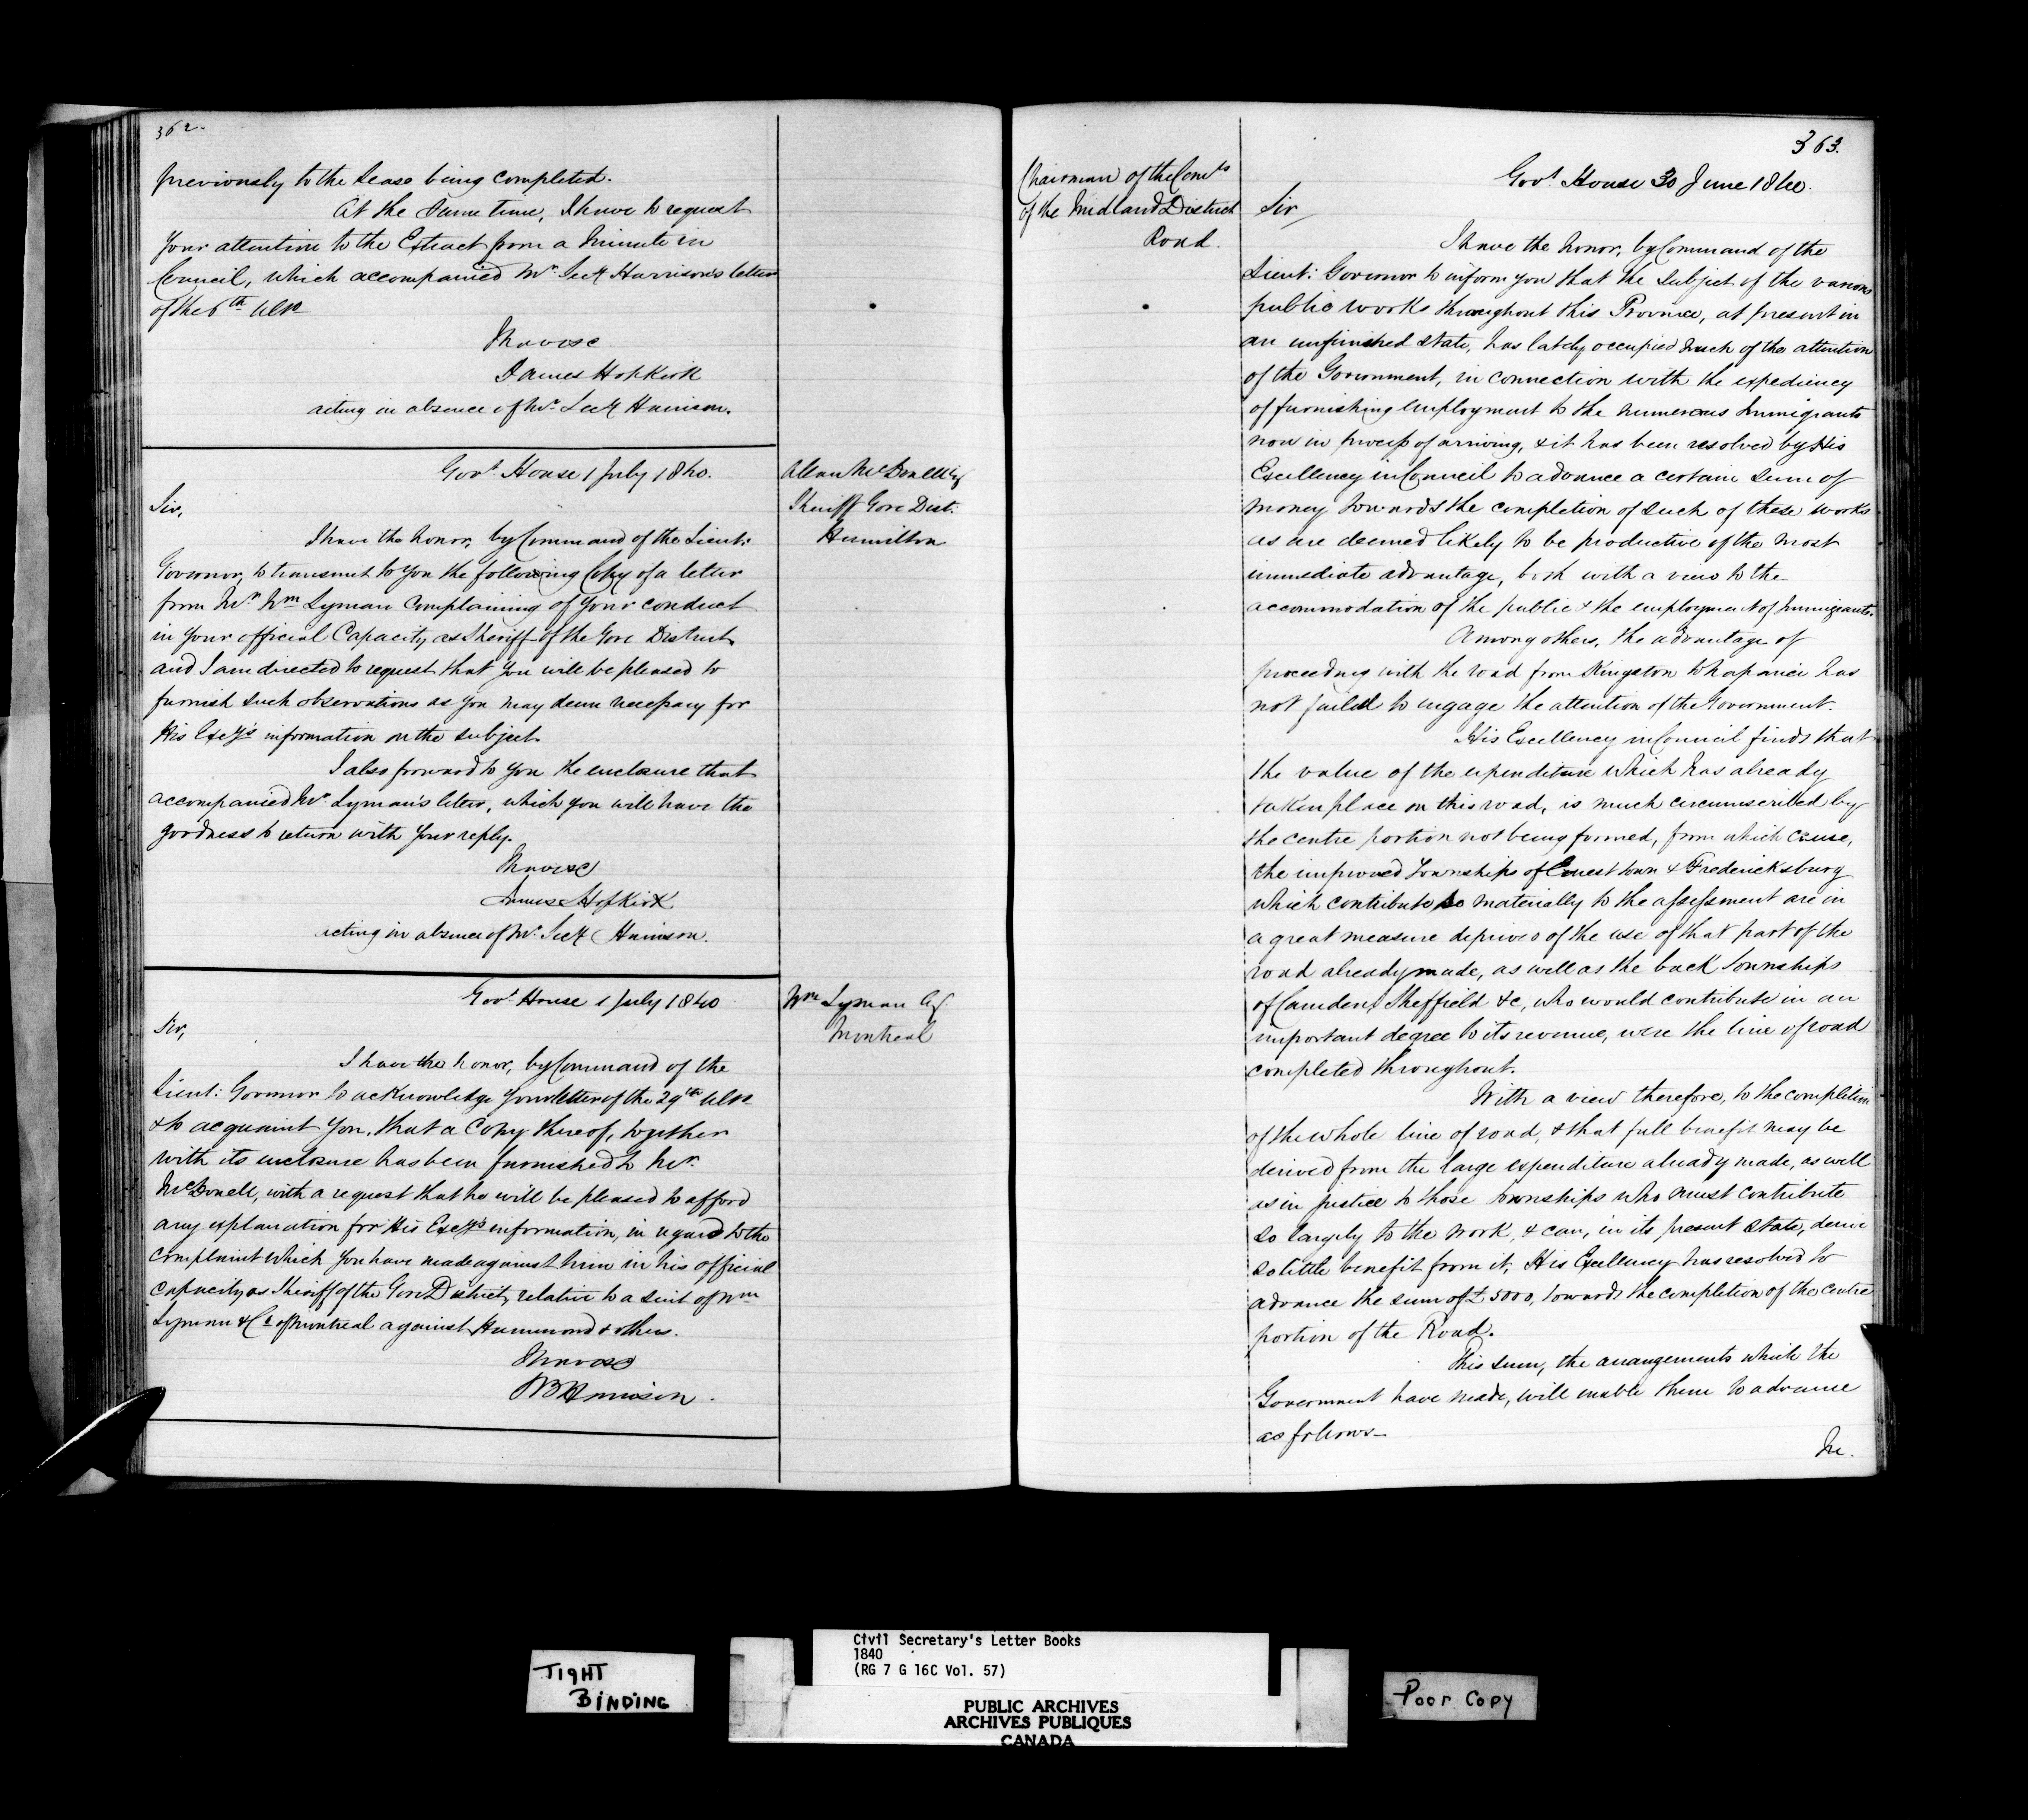 362.
previously to the Lease being completed.
At the same time, I have to request
your attention to the Extract from a Minute in
Council, which accompanied Mr. Secy Harrison's letter
of the 6th Ulto
I have &c
James Hopkirk
acting in absence of Mr. Secy Harrison.
Allan McDonell Esq
Sheriff Gore Dist.
Hamilton
Govt. House 1 July 1840.
Sir,
I have the honor, by Command of the Lieut:
Governor, to transmit to you the following Copy of a letter
from Mr. Wm Lyman complaining of your conduct
in your official Capacity as Sheriff of the Gore District
and I am directed to request that you will be pleased to
furnish such observations as you may deem necessary for
His Excy's information on the subject.
I also forward to you the enclosure that
accompanied Mr. Lyman's letter, which you will have the
goodness to return with your reply.
I have &c
James Hopkirk
acting in absence of Mr. Secy Harrison.
Wm Lyman Esq
Montreal
Govt. House 1 July 1840
Sir,
I have the honor, by Command of the
Lieut: Governor to acknowledge your letter of the 29th Ulto
& to acquaint you, that a Copy thereof, together
with its enclosure has been furnished to Mr.
McDonell, with a request that he will be pleased to afford
any explanation for His Excy's information, in regard to the
complaint which you have made against him in his official
capacity as Sheriff of the Gore District, relative to a suit of Wm
Lyman & Co. of Montreal against Hammond & others.
I have &c
S B Harrison.
363.
Chairman of the Comrs
of the Midland District
Road.
Govt. House 30 June 1840.
Sir,
I have the honor, by Command of the
Lieut: Governor to inform you that the subject of the various
public works throughout this Province, at present in
an unfinished state, has lately occupied much of the attention
of the Government, in connection with the expediency
of furnishing employment to the numerous Immigrants
now in process of arriving, & it has been resolved by His
Excellency in Council to advance a certain sum of
money towards the completion of such of these works
as are deemed likely to be productive of the most
immediate advantage, both with a view to the
accommodation of the public & the employment of Immigrants.
Among others, the advantage of
proceeding with the road from Kingston to Napanee has
not failed to engage the attention of the Government.
His Excellency in Council finds that
the value of the expenditure which has already
taken place on this road, is much circumscribed by
the centre portion not being formed, from which cause,
the improved townships of Ernest town & Fredericksburg
which contribute so materially to the assessment are in
a great measure deprived of the use of that part of the
road already made, as well as the back Townships
of Camden, Sheffield &c, who would contribute in an
important degree to its revenue, were the line of road
completed throughout.
With a view therefore, to the completion
of the whole line of road, & that full benefit may be
derived from the large expenditure already made, as well
as in justice to those townships who must contribute
so largely to the work, & can, in its present state, derive
so little benefit from it, His Excellency has resolved to
advance the sum of £5000, towards the completion of the centre
portion of the Road.
This sum, the arrangements which the
Government have made, will enable them to advance
as follows—
In.
TIGHT
BINDING
Civil Secretary's Letter Books
1840
(RG 7 G 16C Vol. 57)
PUBLIC ARCHIVES
ARCHIVES PUBLIQUES
CANADA
POOR COPY